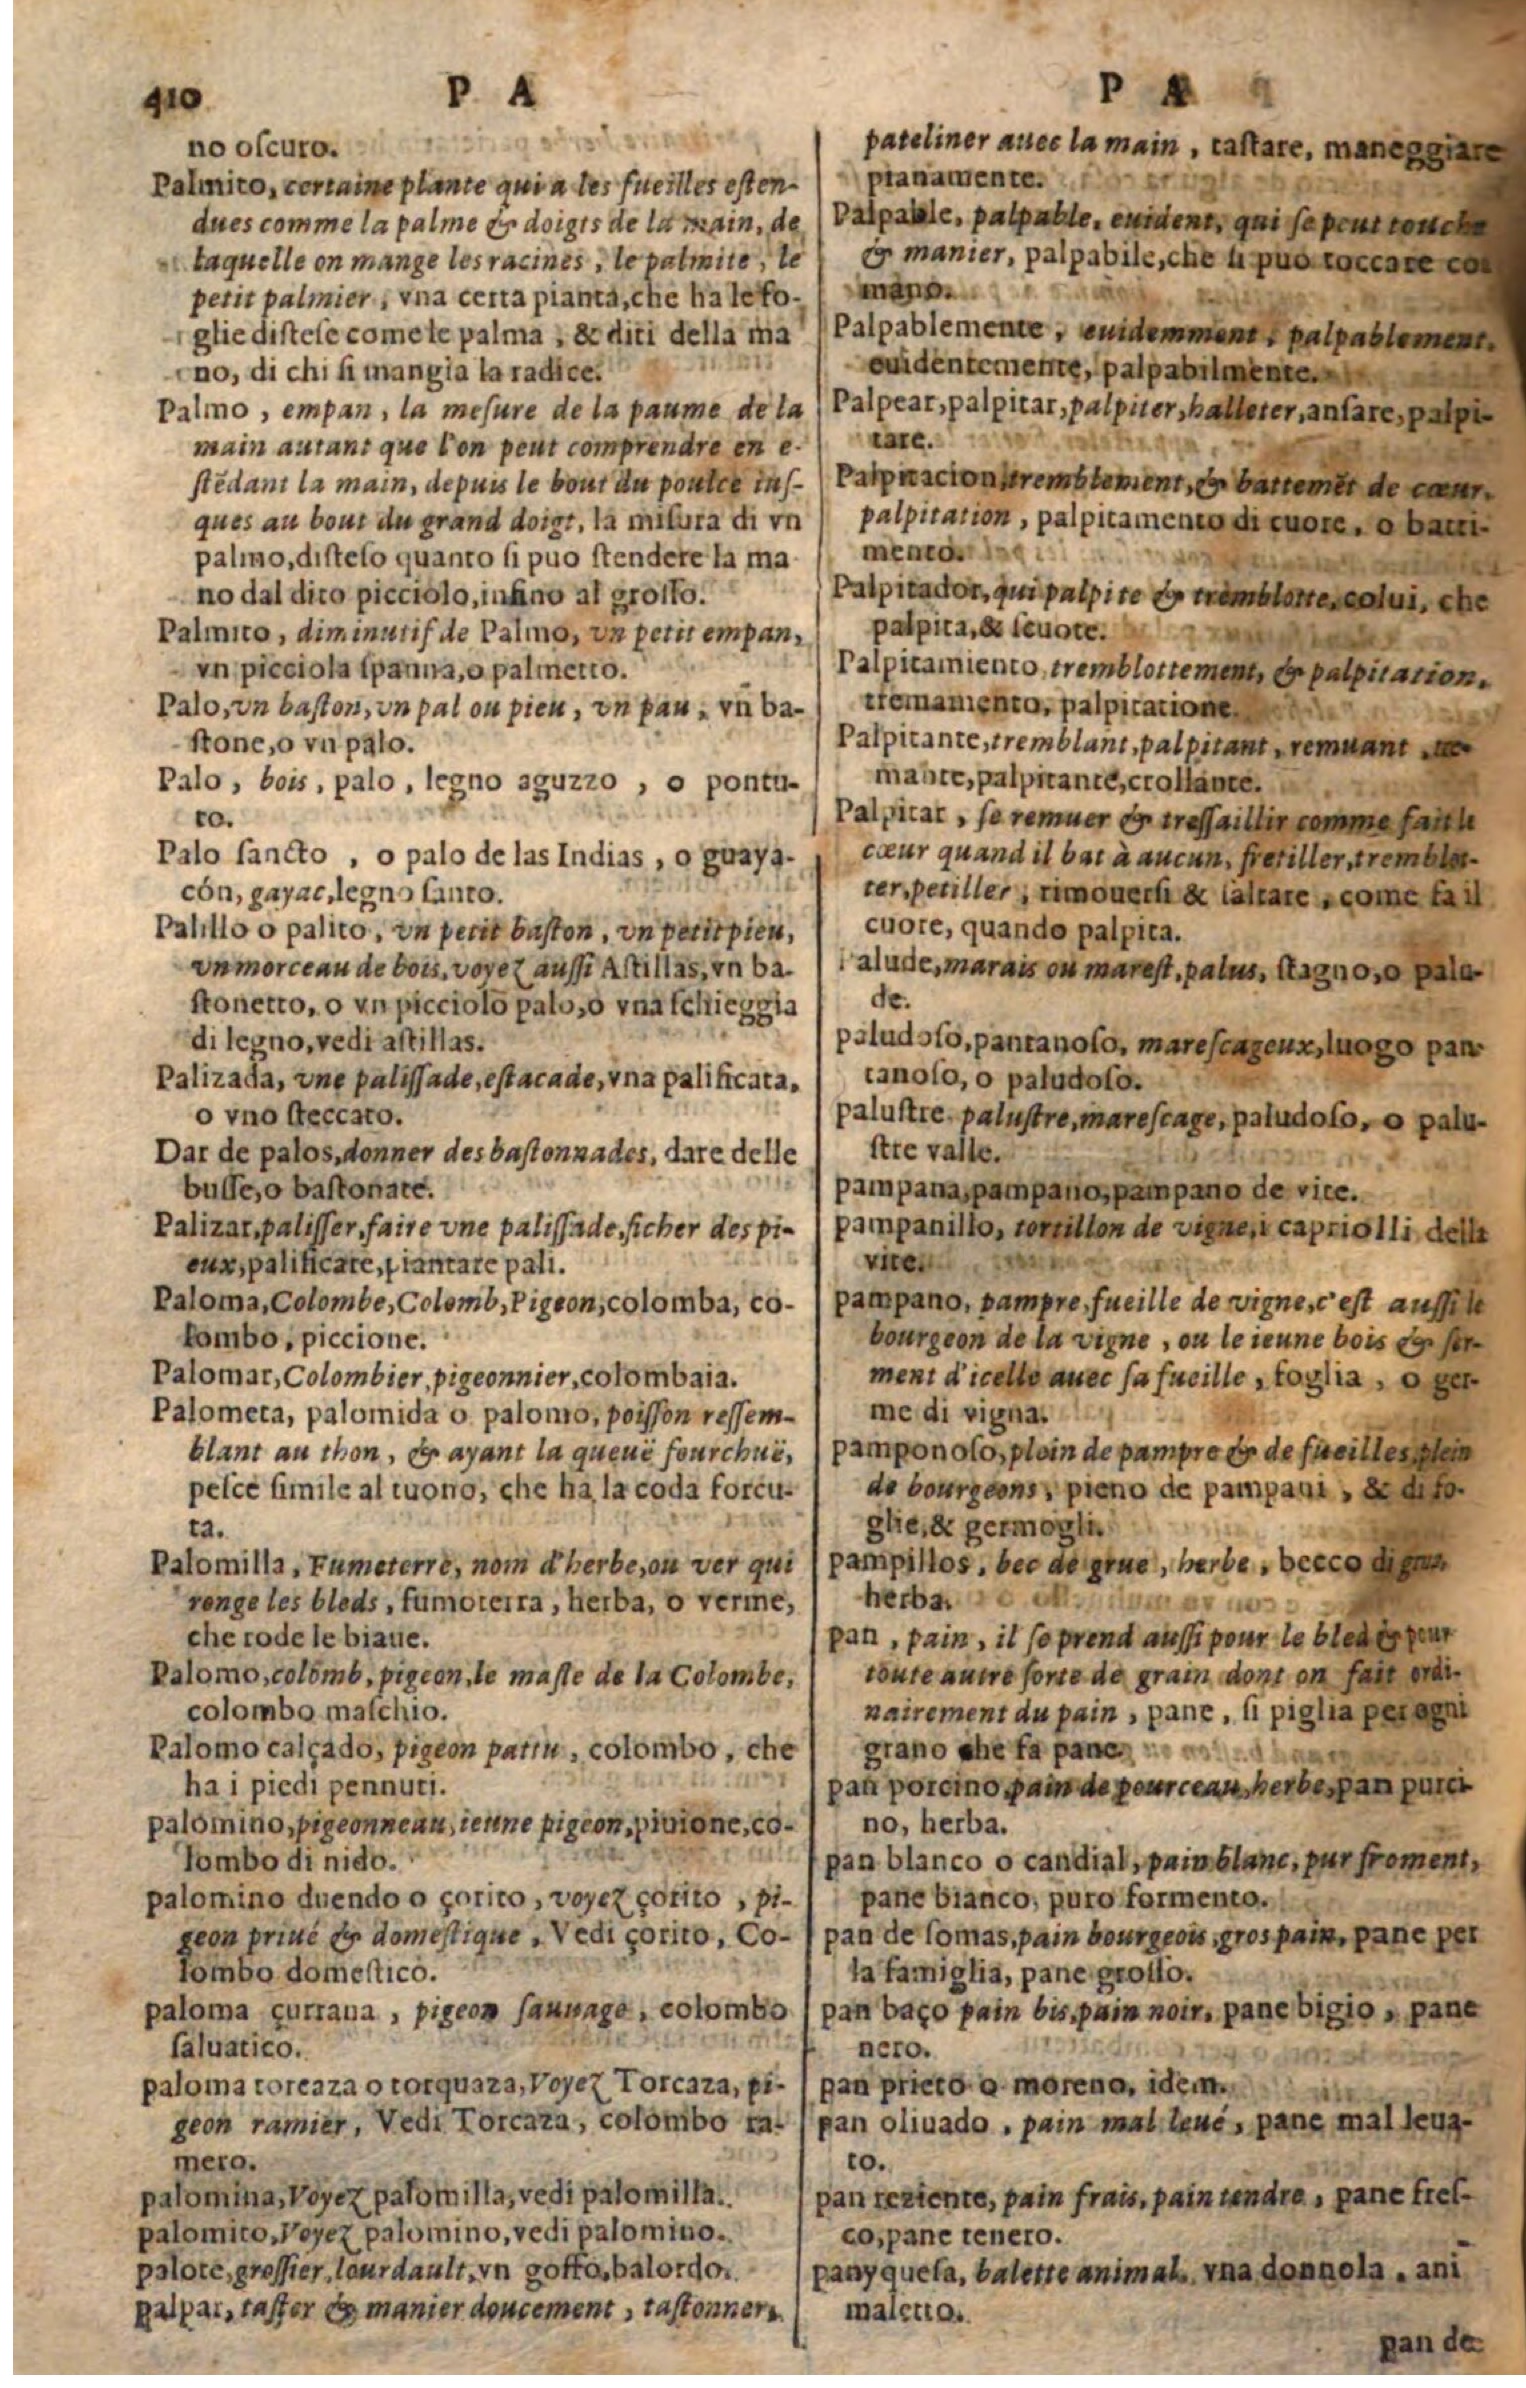 410 P A
no oſcuro.
Palmito, certaine plante qui a les fueilles eſten-
dues comme la palme & doigts de la main, de
laquelle on mange les racines, le palmite, le
petit palmier, vna certa pianta, che ha le fo-
glie diſteſe come le palma, & diti della ma
no, di chi ſi mangia la radice.
Palmo, empan, la meſure de la paume de la
main autant que l'on peut comprendre en e-
ſtẽdant la main, depuis le bout du poulce iuſ-
ques au bout du grand doigt, la miſura di vn
palmo, diſteſo quanto ſi puo ſtendere la ma
no dal dito picciolo, inſino al groſſo.
Palmito, diminutif de Palmo, vn petit empan,
vn picciola ſpanna, o palmetto.
Palo, vn baſton, vn pal ou pieu, vn pau, vn ba-
ſtone, o vn palo.
Palo, bois, palo, legno aguzzo, o pontu-
to.
Palo ſancto, o palo de las Indias, o guaya-
cón, gayac, legno ſanto.
Palillo o palito, vn petit baſton, vn petit pieu,
vn morceau de bois, voyez auſſi Aſtillas, vn ba-
ſtonetto, o vn picciolo palo, o vna ſchieggia
di legno, vedi aſtillas.
Palizada, vne paliſſade, eſtacade, vna palificata,
o vno ſteccato.
Dar de palos, donner des baſtonnades, dare delle
buſſe, o baſtonate.
Palizar, paliſſer, faire vne paliſſade, ficher des pi-
eux, palificare, piantare pali.
Paloma, Colombe, Colomb, Pigeon, colomba, co-
lombo, piccione.
Palomar, Colombier, pigeonnier, colombaia.
Palometa, palomida o palomo, poiſſon reſſem-
blant au thon, & ayant la queuë fourchuë,
peſce ſimile al tuono, che ha la coda forcu-
ta.
Palomilla, Fumeterre, nom d'herbe, ou ver qui
ronge les bleds, fumoterra, herba, o verme,
che rode le biaue.
Palomo, colomb, pigeon, le maſle de la Colombe,
colombo maſchio.
Palomo calçado, pigeon pattu, colombo, che
ha i piedi pennuti.
palomino, pigeonneau, ieune pigeon, piuione, co-
lombo di nido.
palomino duendo o çorito, voyez çorito, pi-
geon priué & domeſtique, Vedi çorito, Co-
lombo domeſtico.
paloma çurrana, pigeon ſauuage, colombo
ſaluatico.
paloma torcaza o torquaza, Voyez Torcaza, pi-
geon ramier, Vedi Torcaza, colombo ra-
mero.
palomina, Voyez palomilla, vedi palomilla.
palomito, Voyez palomino, vedi palomino.
palote, groſſier, lourdault, vn goffo, balordo.
palpar, taſter & manier doucement, taſtonner,
P A
pateliner auec la main, taſtare, maneggiare
pianamente.
Palpable, palpable, euident, qui ſe peut touche
& manier, palpabile, che ſi puo toccare co
mano.
Palpablemente, euidemment, palpablement,
euidentemente, palpabilmente.
Palpear, palpitar, palpiter, halleter, anſare, palpi-
tare.
Palpitacion, tremblement, & battemẽt de cœur,
palpitation, palpitamento di cuore, o batti-
mento.
Palpitador, qui palpite & tremblotte, colui, che
palpita, & ſcuote.
Palpitamiento, tremblottement, & palpitation,
tremamento, palpitatione.
Palpitante, tremblant, palpitant, remuant, tre-
mante, palpitante, crollante.
Palpitar, ſe remuer & treſſaillir comme fait le
cœur quand il bat à aucun, fretiller, tremblot-
ter, petiller, rimouerſi & ſaltare, come fa il
cuore, quando palpita.
alude, marais ou mareſt, palus, ſtagno, o palu-
de.
paludoſo, pantanoſo, mareſcageux, luogo pan-
tanoſo, o paludoſo.
paluſtre paluſtre, mareſcage, paludoſo, o palu-
ſtre valle.
pampana, pampano, pampano de vite.
pampanillo, tortillon de vigne, i capriolli della
vite.
pampano, pampre, fueille de vigne, c'eſt auſſi le
bourgeon de la vigne, ou le ieune bois & ſer-
ment d'icelle auec ſa fueille, foglia, o ger-
me di vigna.
pamponoſo, plein de pampre & de fueilles, plein
de bourgeons, pieno de pampani, & di fo-
glie, & germogli.
pampillos, bec de grue, herbe, becco di grua,
herba.
pan, pain, il ſe prend auſſi pour le bled & pour
toute autre ſorte de grain dont on fait ordi-
nairement du pain, pane, ſi piglia per ogni
grano che fa pane.
pan porcino, pain de pourceau, herbe, pan purci-
no, herba.
pan blanco o candial, pain blanc, pur froment,
pane bianco, puro formento.
pan de ſomas, pain bourgeois, gros pain, pane per
la famiglia, pane groſſo.
pan baço pain bis, pain noir, pane bigio, pane
nero.
pan prieto o moreno, idem.
pan oliuado, pain mal leué, pane mal leua-
to.
pan reziente, pain frais, pain tendre, pane freſ-
co, pane tenero.
panyqueſa, balette animal, vna donnola, ani
maletto.
pan de